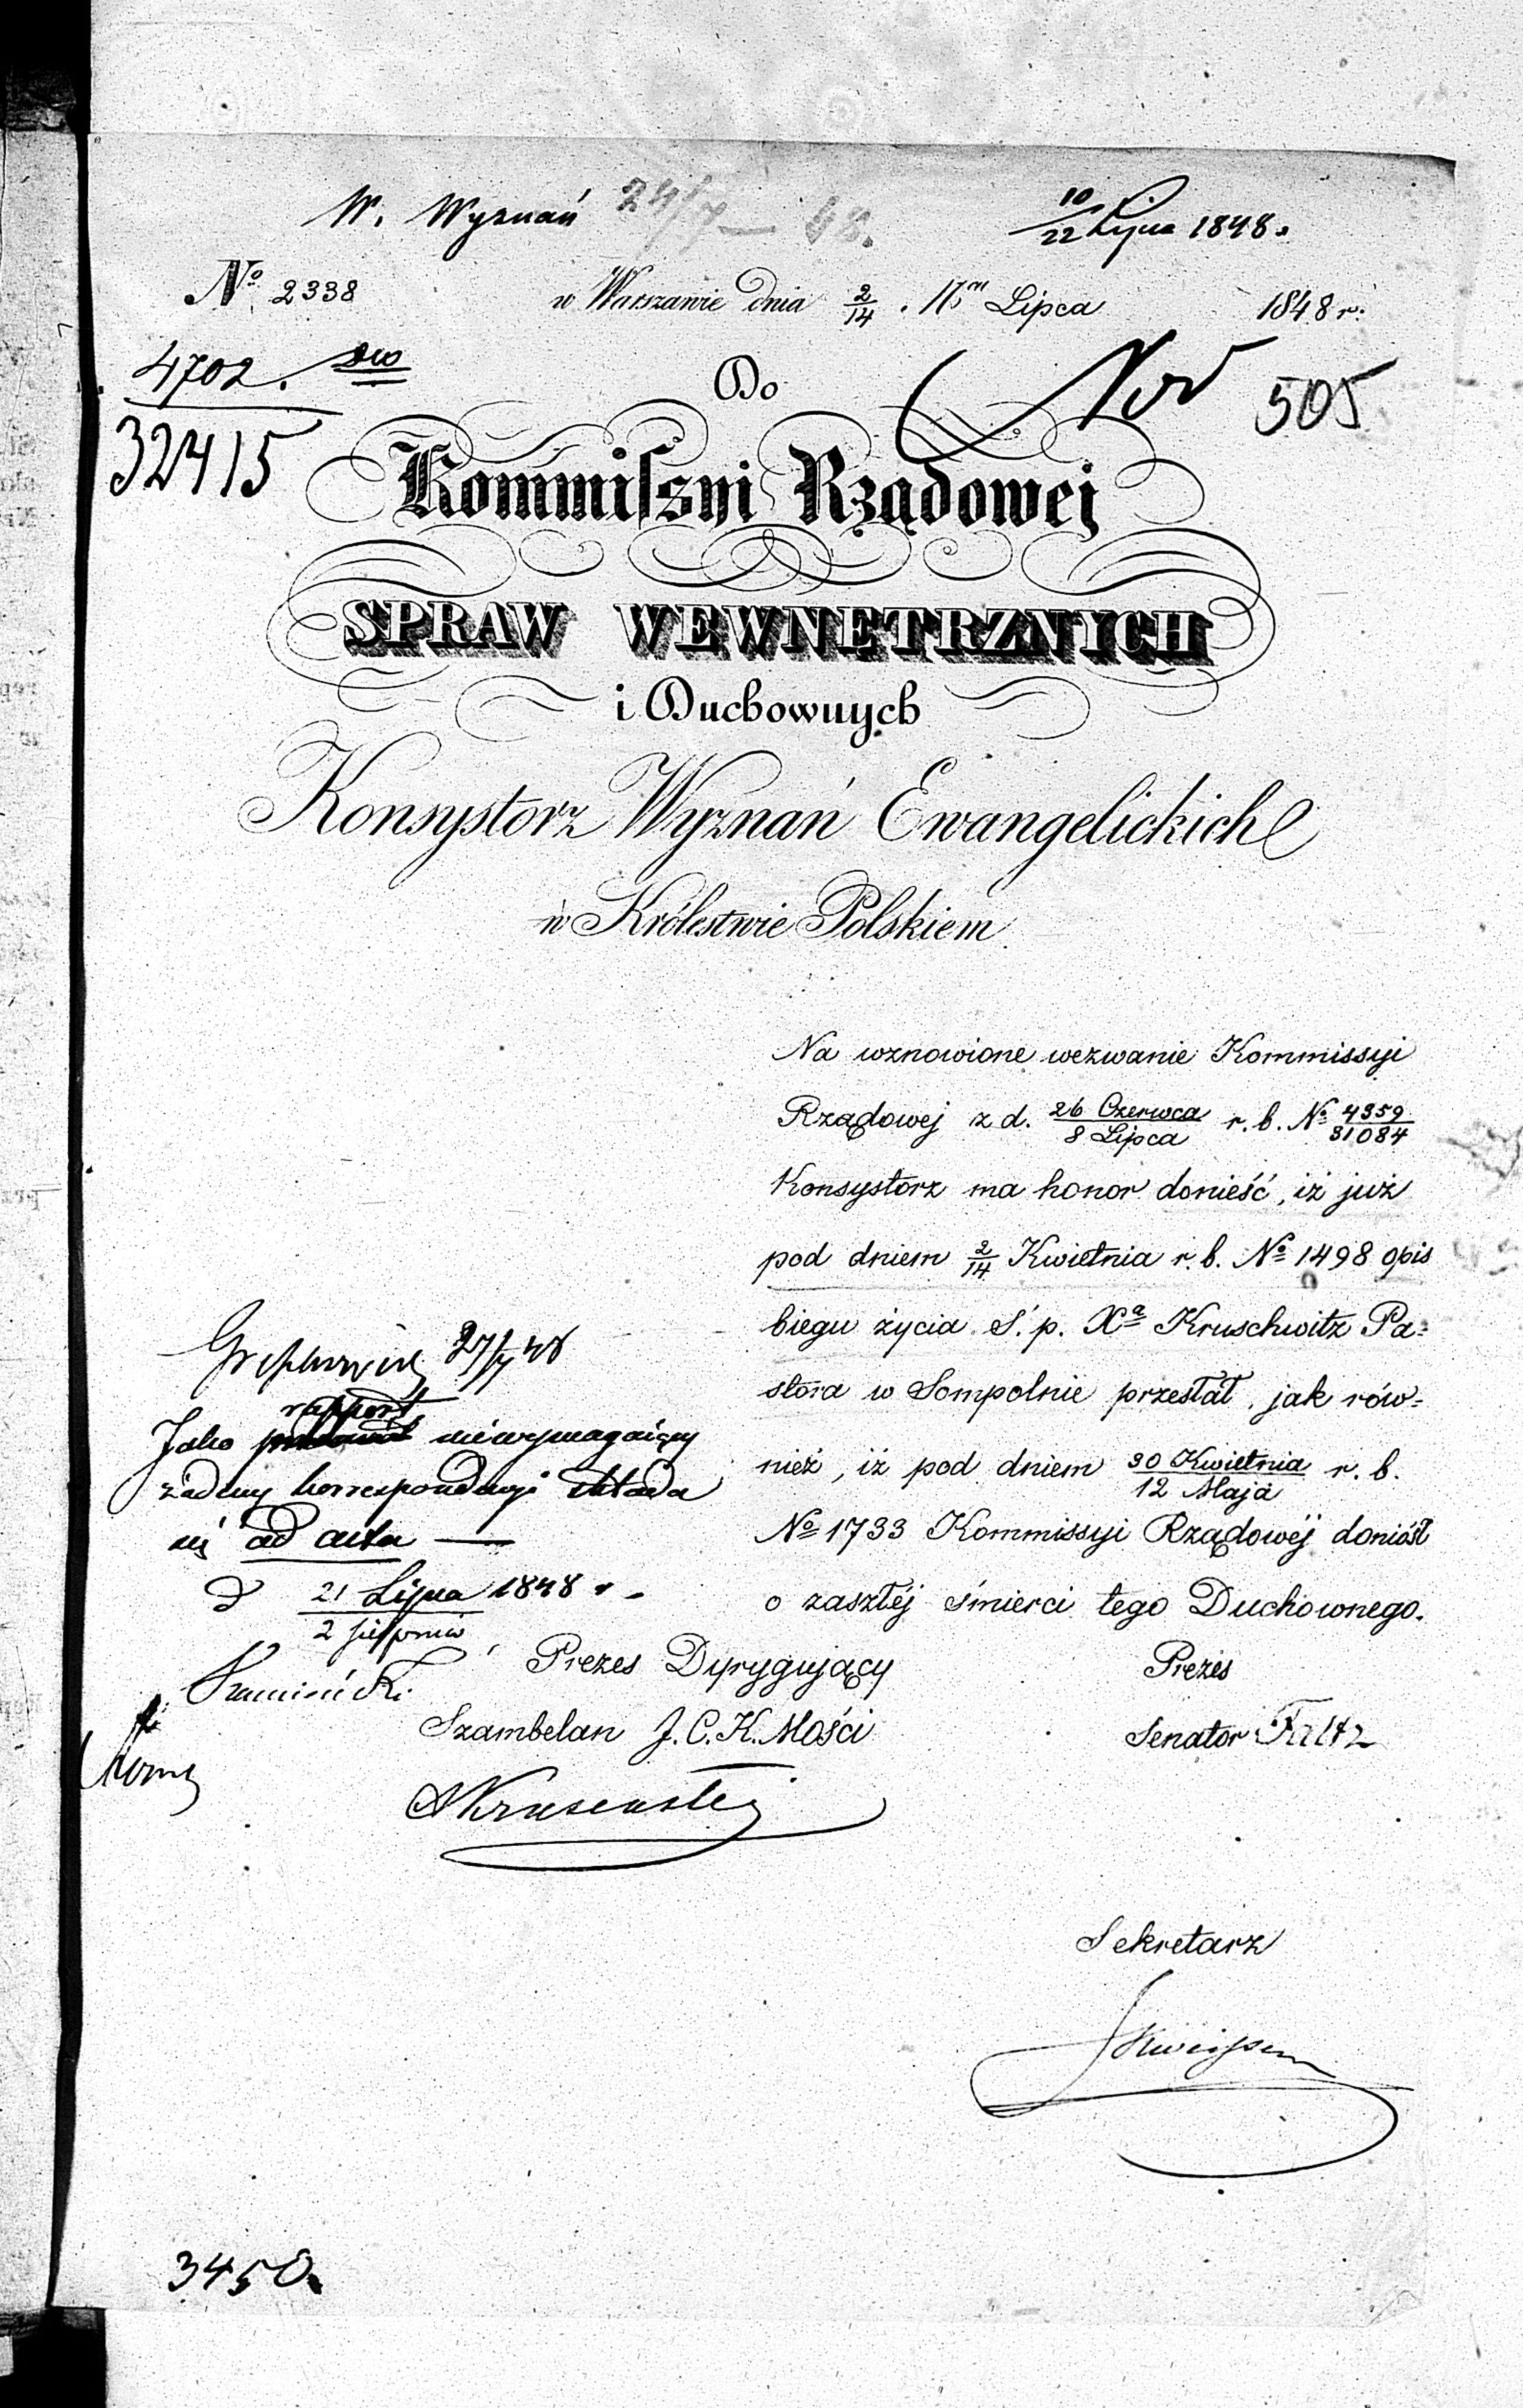 W. Wyznań 24/7 — 48.
10/22 Lipca 1848.
No 2338
w Warszawie dnia 2/14 Lipca 1848 r.
4702.
32415
Do
505
Kommissyi Rządowej
SPRAW WEWNĘTRZNYCH
i Duchownych
Konsystorz Wyznań Ewangelickich
w Królestwie Polskiem
Na wznowione wezwanie Kommissyi
Rządowej z d. 26 Czerwca/8 Lipca r. b. No 4359/31084
Konsystorz ma honor donieść, iż już
pod dniem 2/14 Kwietnia r. b. No 1498 opis
biegu życia Ś. p. Xa Kruschwitz Pa=
stora w Sompolnie przesłał, jak rów=
nież, iż pod dniem 30 Kwietnia/12 Maja r. b.
No 1733 Kommissyi Rządowéj doniósł
o zaszłéj śmierci tego Duchownego.
27/7 48
rapport
Jako niewymagaiący
żadney korrespondencyi składa
się ad acta —
d 21 Lipca/2 sierpnia 1848 r.
Kamiński
Prezes Dyrygujący
Szambelan J. C. K. Mości
Prezes
Senator
Sekretarz
3450.